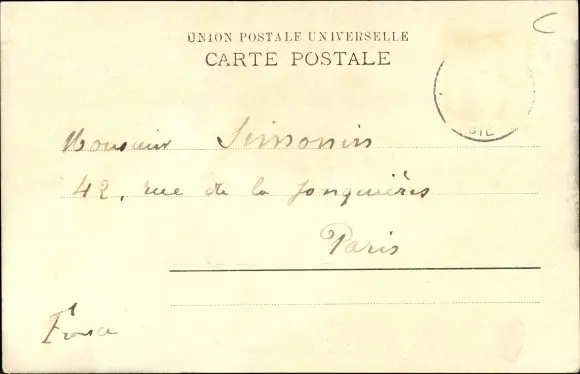 UNION POSTALE UNIVERSELLE
CARTE POSTALE
Monsieur Simonin
42, rue de la Jonquières
Paris
France